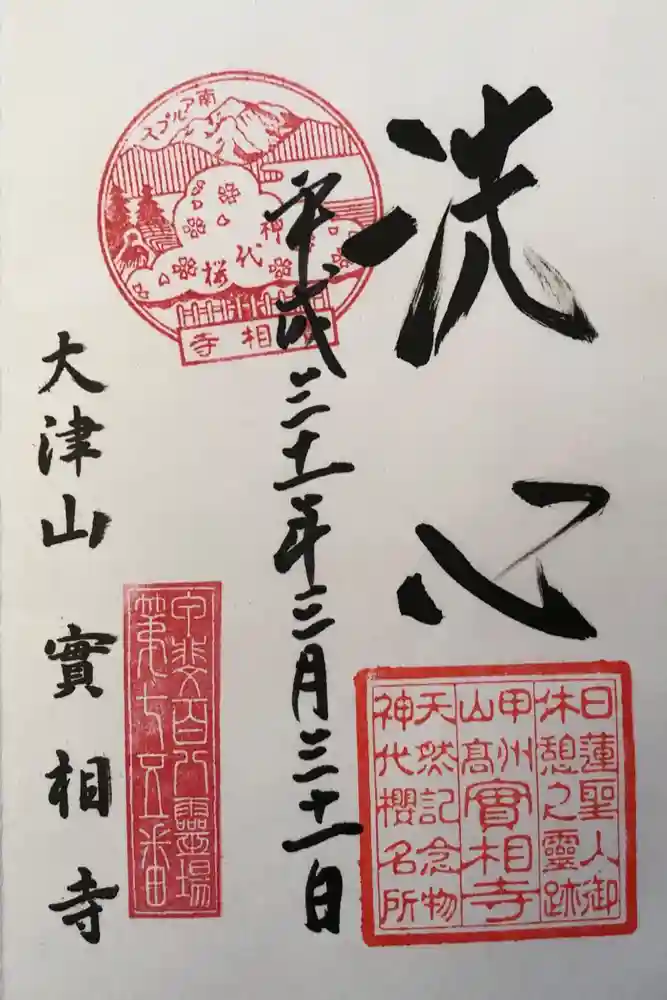 洗心
日蓮聖人御
休憩之靈跡
甲州
山高
實相寺
天然記念物
神代櫻名所
平成三十一年三月三十一日
南アルプス
神代桜
相寺
甲斐百八靈場
第七五番
大津山 實相寺